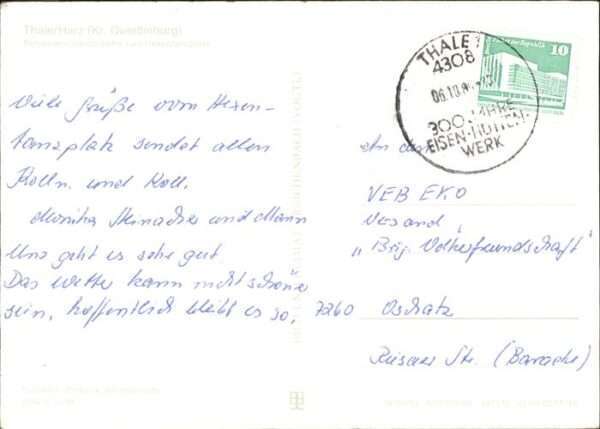 Thale/Harz (Kr. Quedlinburg)
Viele Grüße vom Hexen-
tanzplatz sendet allen
Kolln. und Koll.
Monika und Mann
Uns geht es sehr gut
Das Wetter kann nicht schöner
sein, hoffentlich bleibt es so.
THALE 1
4308
06.10.
300 JAHRE
EISEN-HÜTTEN-
WERK
10
An den
VEB EKO
Versand
"Brig. Völkerfreundschaft"
7260 Oschatz
Riesaer Str. (Baracke)